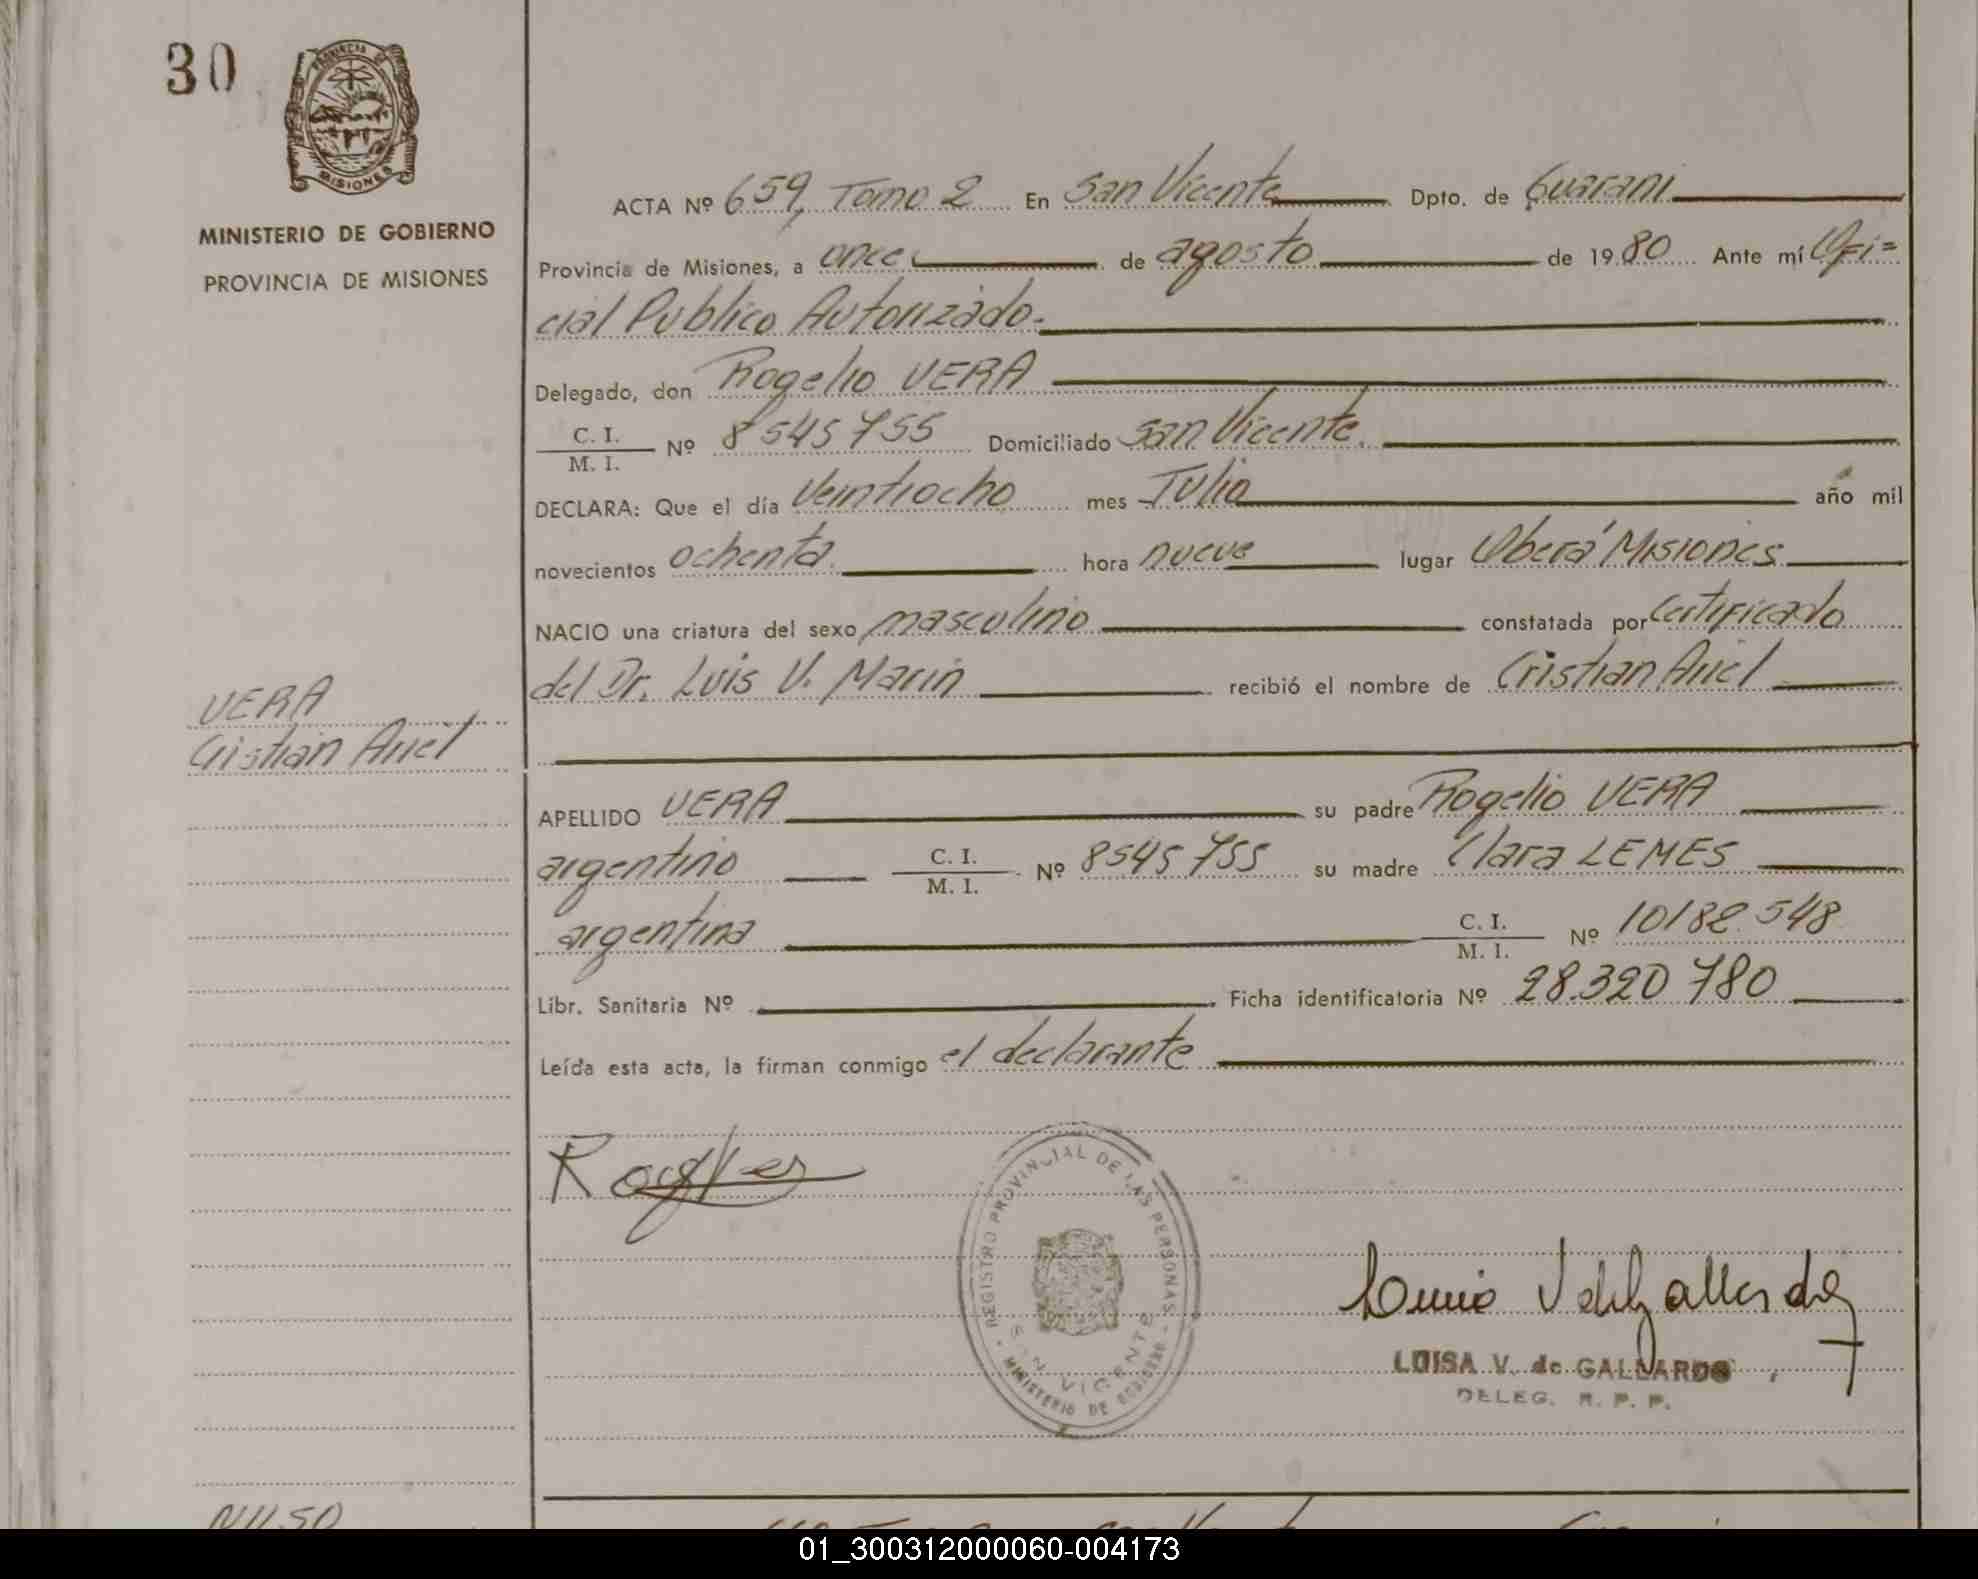 30
PROVINCIA DE
MISIONES
MINISTERIO DE GOBIERNO
PROVINCIA DE MISIONES
ACTA Nº 659, Tomo 2 En San Vicente Dpto. de Guarani
Provincia de Misiones, a once de agosto de 1980 Ante mí Ofi=
cial Publico Autorizado.
Delegado, don Rogelio VERA
C. I.
M. I. Nº 8545755 Domiciliado San Vicente.
DECLARA: Que el día Veintiocho mes Julio año mil
novecientos ochenta. hora nueve lugar Oberá Misiones
NACIO una criatura del sexo masculino constatada por certificado
del Dr. Luis V. Marin recibió el nombre de Cristian Ariel
VERA
Cristian Ariel
APELLIDO VERA su padre Rogelio VERA
argentino C. I.
M. I. Nº 8545755 su madre Clara LEMES
argentina C. I.
M. I. Nº 10182.548
Libr. Sanitaria Nº Ficha identificatoria Nº 28.320780
Leída esta acta, la firman conmigo el declarante
REGISTRO PROVINCIAL DE LAS PERSONAS
SAN VICENTE
MINISTERIO DE GOBIERNO
LUISA V. de GALLARDO
DELEG. R. P. P.
01_300312000060-004173